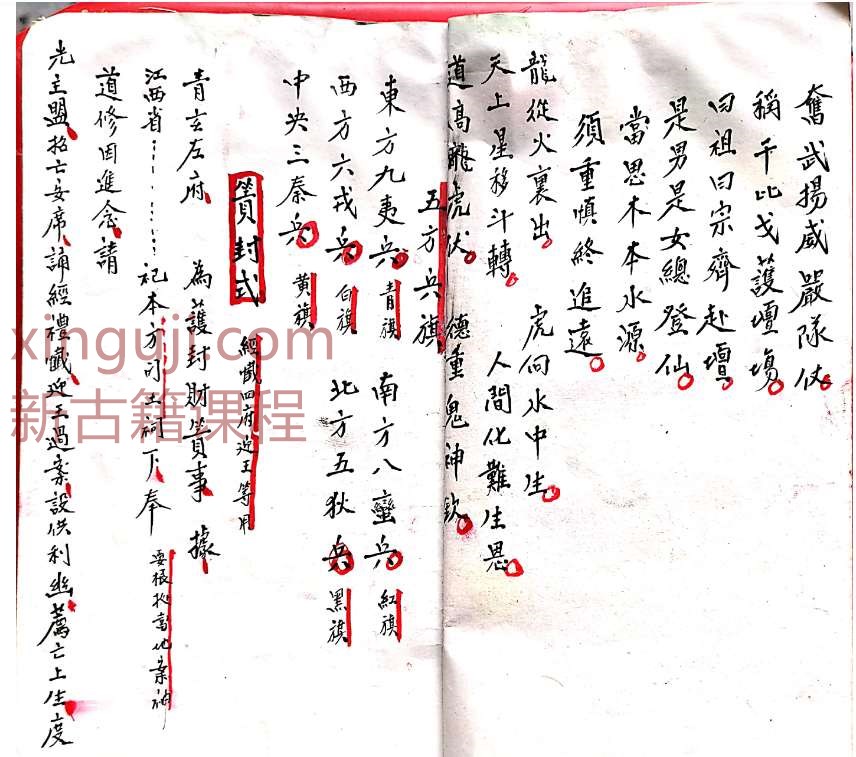 奮武揚威嚴隊仗
稱干比戈護壇場
曰祖曰宗齊赴壇
是男是女總登仙
當思木本水源
須重慎終追遠
龍從火裏出 虎向水中生
天上星移斗轉 人間化難生恩
道高龍虎伏 德重鬼神欽
五方兵旗
東方九夷兵 青旗 南方八蠻兵 紅旗
西方六戎兵 白旗 北方五狄兵 黑旗
中央三秦兵 黃旗
簣封式 經懺四府迎王等用
青玄左府 為護封財簣事 據
江西省 祀本方司土祠下 奉
道修因進念 請
光主盟 招亡安席 誦經禮懺 迎王過案 設供利幽 薦亡上生 度
xinguji.com
新古籍课程